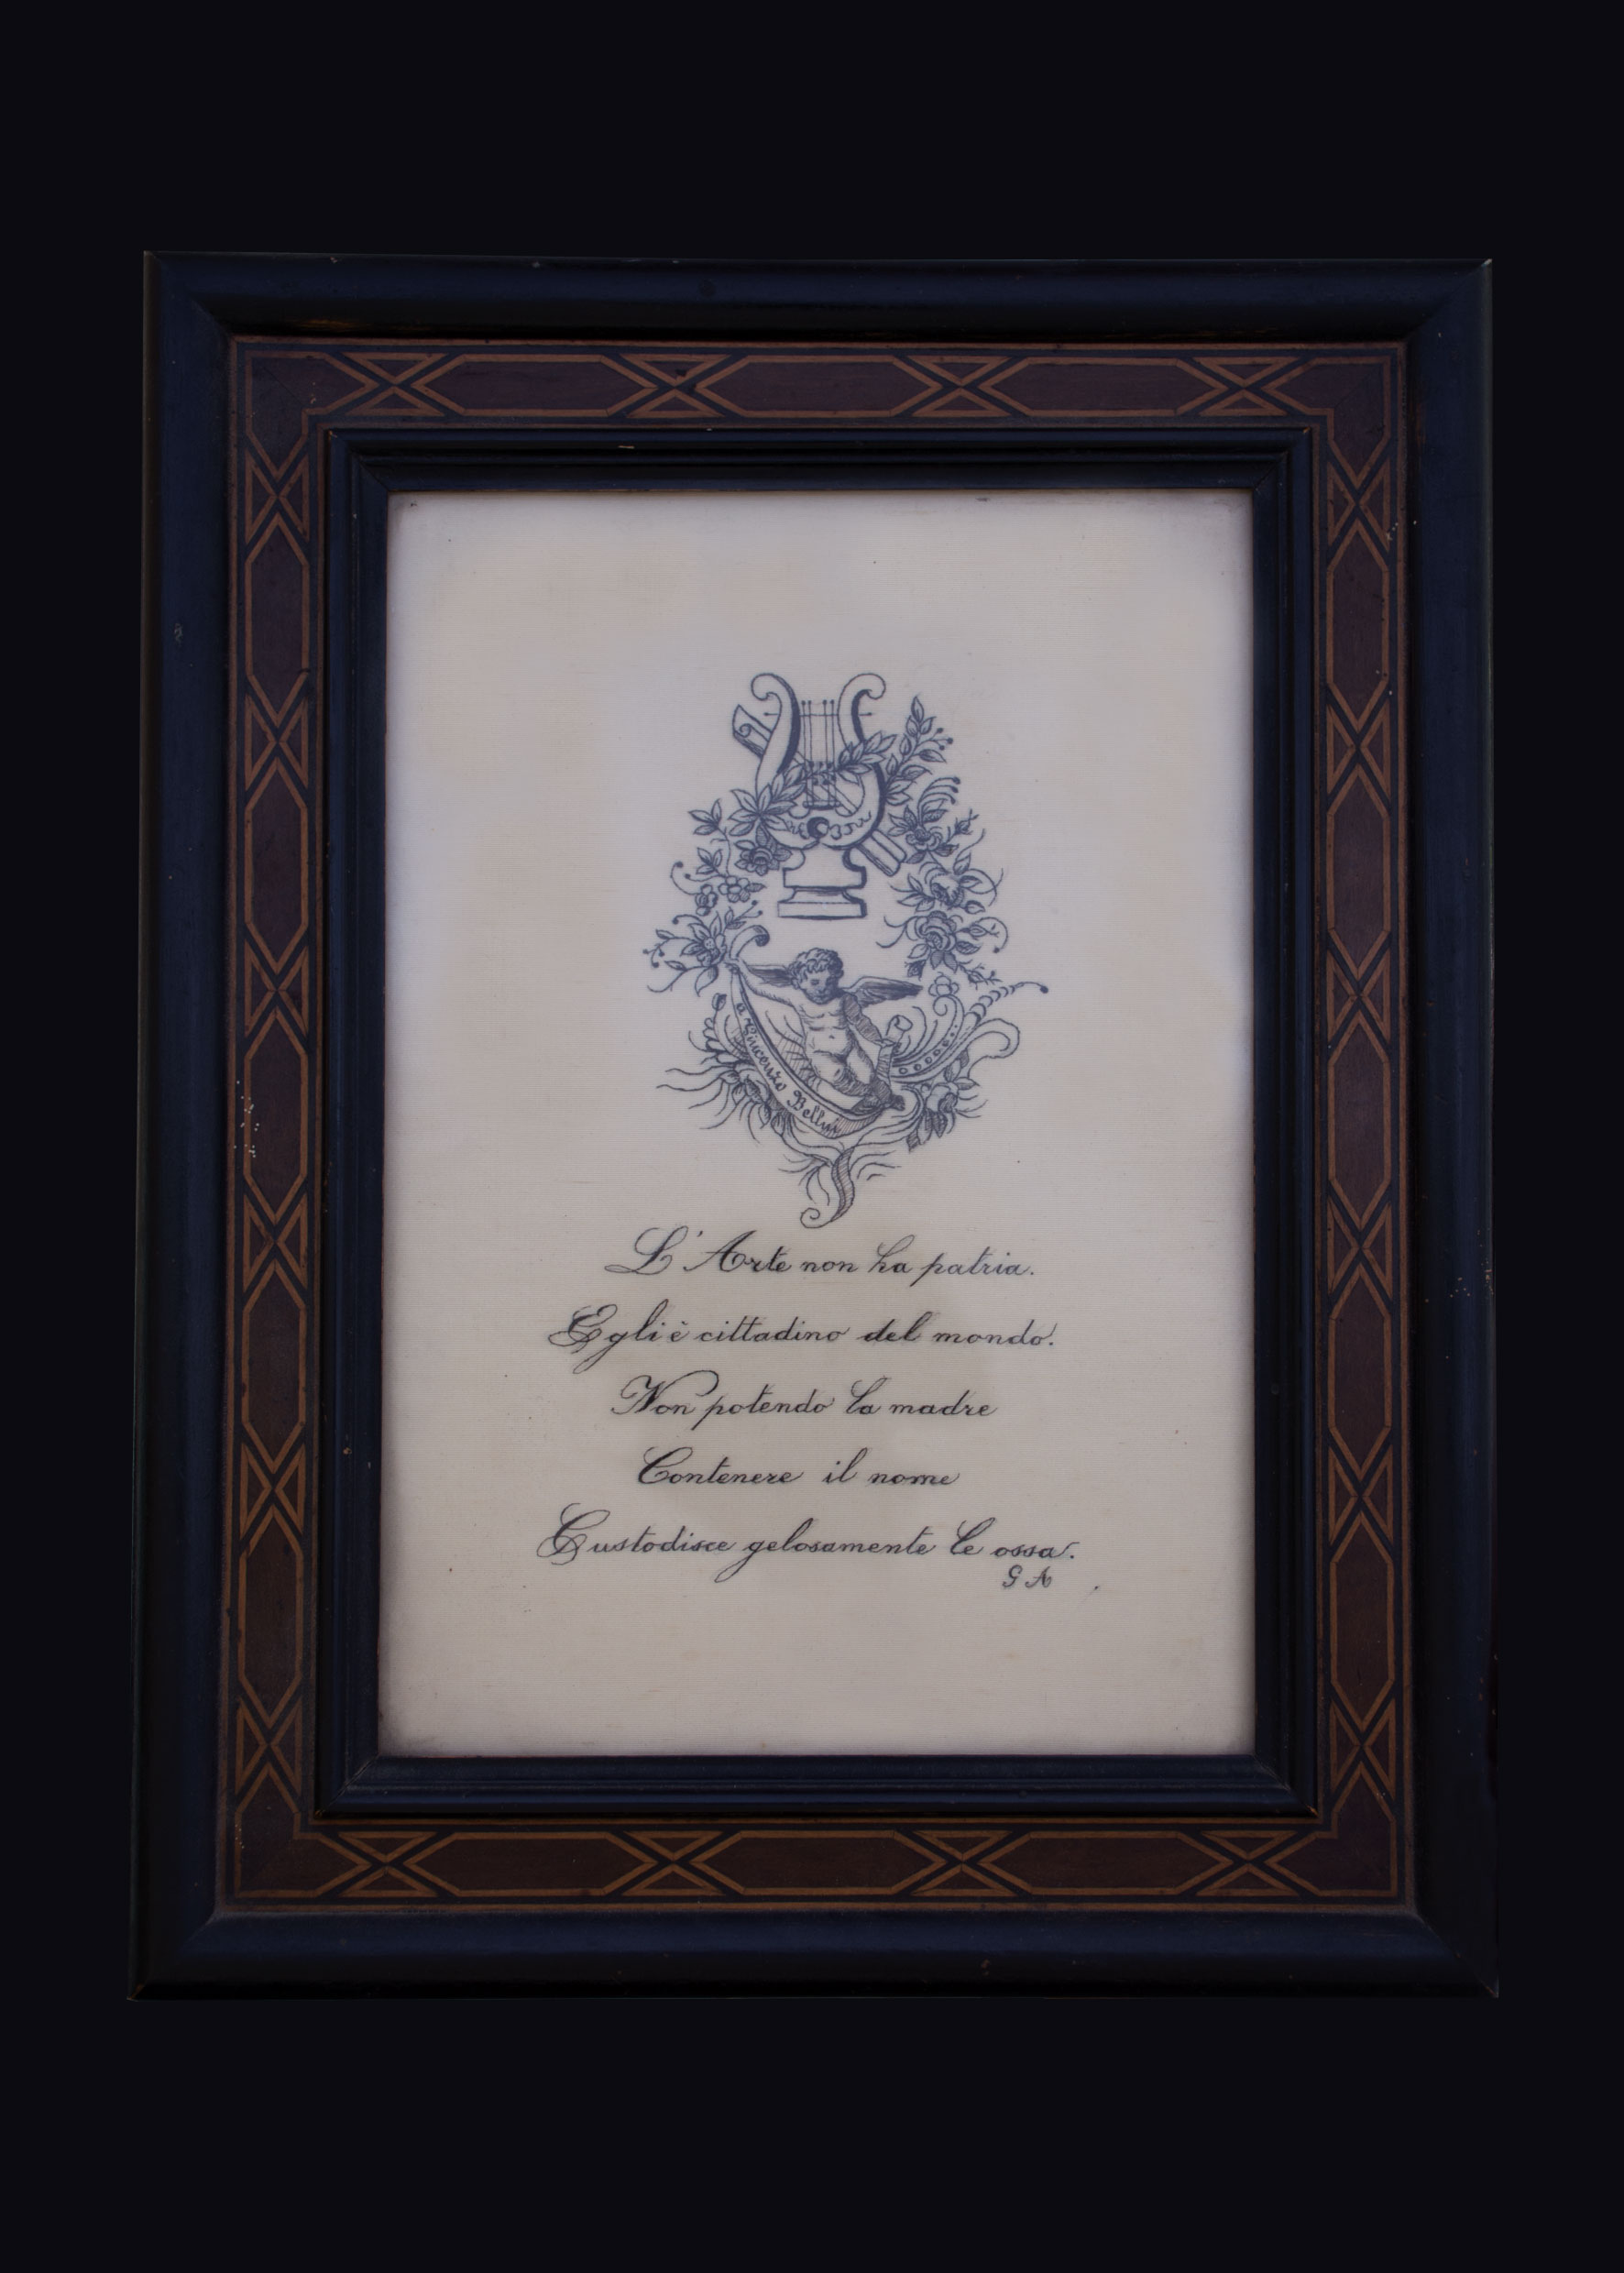 a Vincenzo Bellini
L'Arte non ha patria.
Egli è cittadino del mondo.
Non potendo la madre
Contenere il nome
Custodisce gelosamente le ossa.
G A